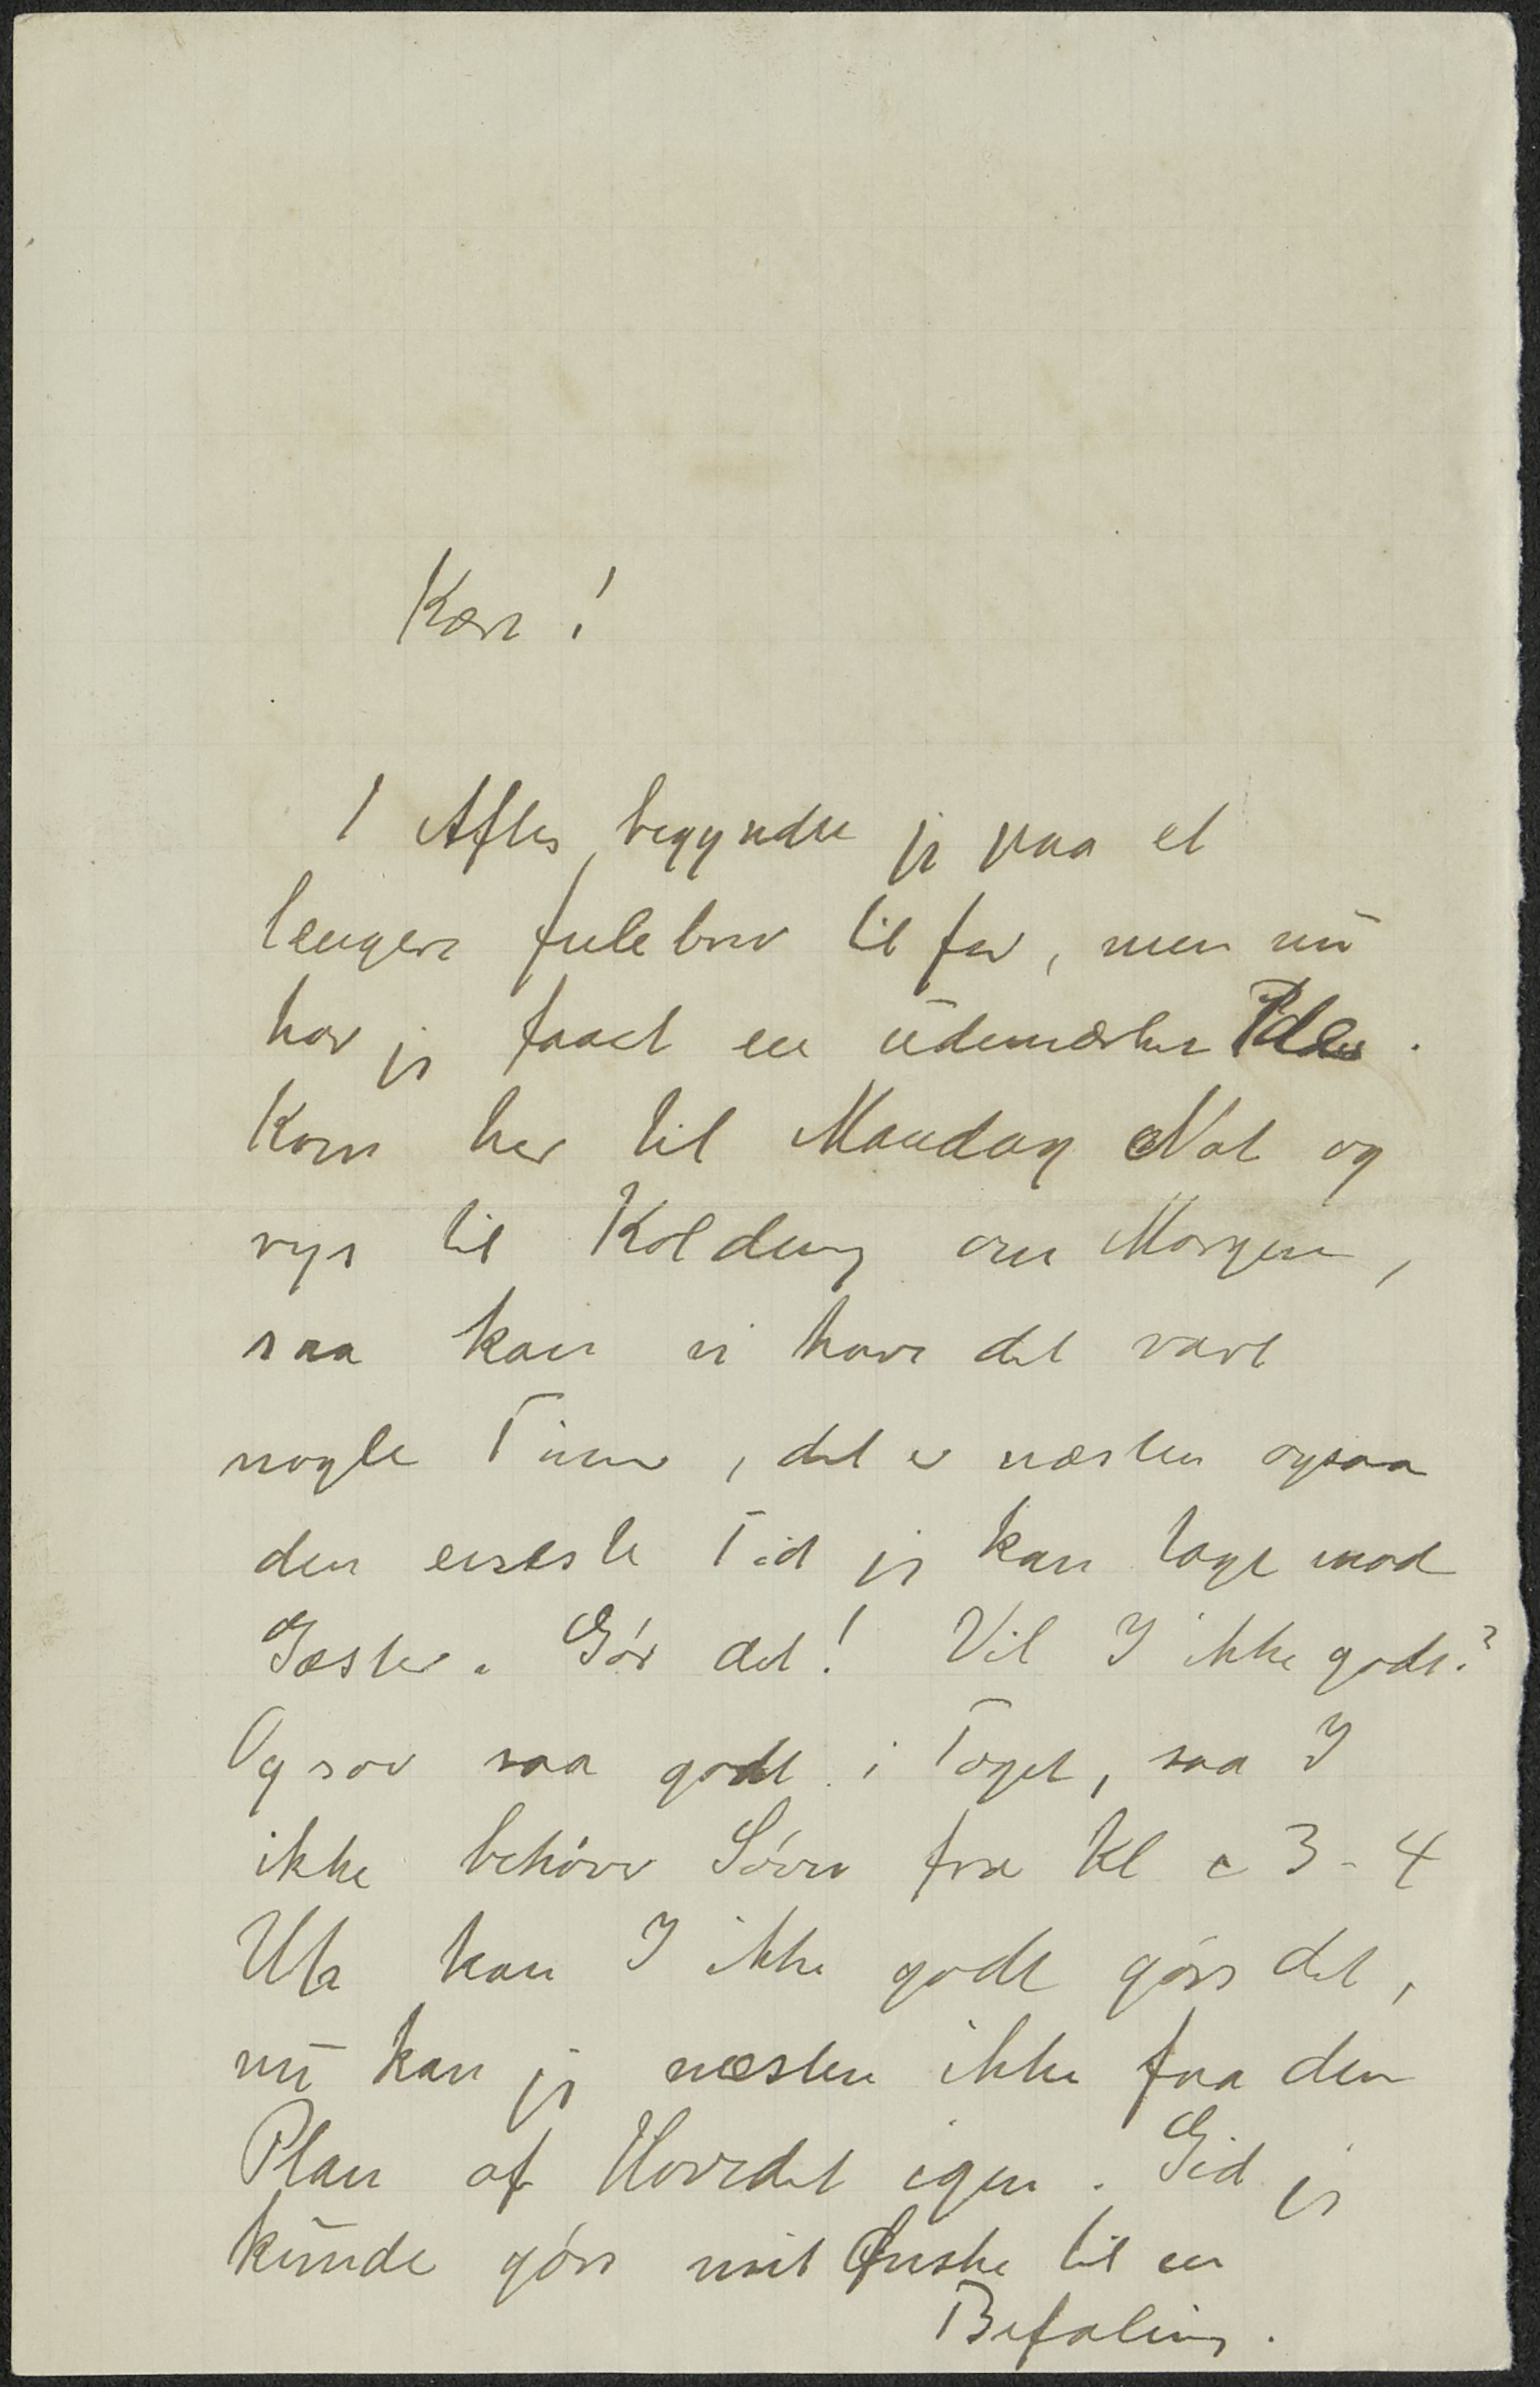 Kære!
I Aftes begyndte jeg paa et
længere Julebrev til for, men nu
har jeg faaet en udemærket Ide.
Kom her til Mandag Nat og
rejs til Kolding om Morgen,
saa kan vi have det rart
nogle Timer, det er næsten ogsaa
den eneste Tid jeg kan tage mod
Gæster. Gør det! Vil I ikke godt?
Og sov saa godt i Toget, saa I
ikke behøver Søvn fra Kl c 3-4
Uh kan I ikke godt gøre det,
nu kan jeg næsten ikke faa den
Plan af Hovedet igen. Gid jeg
kunde gøre mit Ønske til en
Befaling.